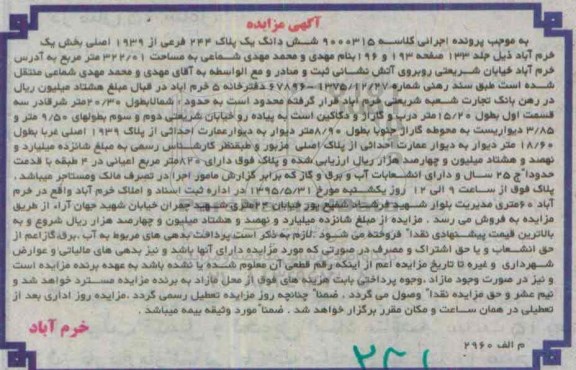 آگهی مزایده
به موجب پرونده اجرائی کلاسه ۹۰۰۰۳۱۵ شش دانگ یک پلاک ۲۴۴ فرعی از ۱۹۳۹ اصلی بخش یک
خرم آباد ذیل جلد ۱۳۳ صفحه ۱۹۳ و ۱۹۶ بنام مهدی و محمد مهدی شماعی به مساحت ۳۲۲/۰۱ متر مربع به آدرس
خرم آباد خیابان شریعتی روبروی آتش نشانی ثبت و صادر و مع الواسطه به آقای مهدی و محمد مهدی شماعی منتقل
شده است طبق سند رهنی شماره ۶۷۸۹۶-۱۳۷۵/۱۲/۲۷ دفترخانه ۵ خرم اباد در قبال مبلغ هشتاد میلیون ریال
در رهن بانک تجارت شعبه شریعتی خرم آباد قرار گرفته محدود است به حدود : شمالا بطول ۲۰/۳۰ متر شرقا در سه
قسمت اول بطول ۱۵/۲۰ متر درب و گاراژ و دکاکین است به پیاده رو خیابان شریعتی دوم و سوم بطولهای ۹/۵۰ متر و
۳/۸۵ دیواریست به محوطه گاراژ جنوبا بطول ۸/۹۰ متر دیوار به دیوار عمارت احداثی از پلاک ۱۹۳۹ اصلی غربا بطول
۱۸/۶۰ متر دیوار به دیوار عمارت احداثی از پلاک اصلی مزبور و طبق نظر کارشناس رسمی به مبلغ شانزده میلیارد و
نهصد و هشتاد میلیون و چهارصد هزار ریال ارزیابی شده و پلاک فوق دارای ۸۲۰ متر مربع اعیانی در ۴ طبقه با قدمت
حدودا"چ ۲۵ سال و دارای انشعابات آب و برق و گاز که برابر گزارش مامور اجرا در تصرف مالک ومستاجر میباشد .
پلاک فوق از ساعت ۹ الی ۱۲ روز یکشنبه مورخ ۱۳۹۵/۵/۳۱ در اداره ثبت اسناد و املاک خرم آباد واقع در خرم
آباد ۶۰متری مدیریت بلوار شهید فرشاد شفیع پور خیابان ۲۴متری شهید چمران خیابان شهید جهان آرا، از طریق
مزایده به فروش می رسد . مزایده از مبلغ شانزده میلیارد و نهصد و هشتاد میلیون و چهارصد هزار ریال شروع و به
بالاترین قیمت پیشنهادی نقدا" فروخته می شود .لازم به ذکر است پرداخت بدهی های مربوط به آب ،برق،گاز اعم از
حق انشعاب و یا حق اشتراک و مصرف در صورتی که مورد مزایده دارای آنها باشد و نیز بدهی های مالیاتی و عوارض
شهرداری و غیره تا تاریخ مزایده اعم از اینکه رقم قطعی آن معلوم شده یا نشده باشد به عهده برنده مزایده است
و نیز در صورت وجود مازاد ،وجوه پرداختی بابت هزینه های فوق از محل مازاد به برنده مزایده مسترد خواهد شد و
نیم عشر و حق مزایده نقدا" وصول می گردد . ضمنا" چنانچه روز مزایده تعطیل رسمی گردد ،مزایده روز اداری بعد از
تعطیلی در همان ساعت و مکان مقرر برگزار خواهد شد . ضمنا" مورد وثیقه بیمه میباشد .
خرم آباد
م الف ۲۹۶۰